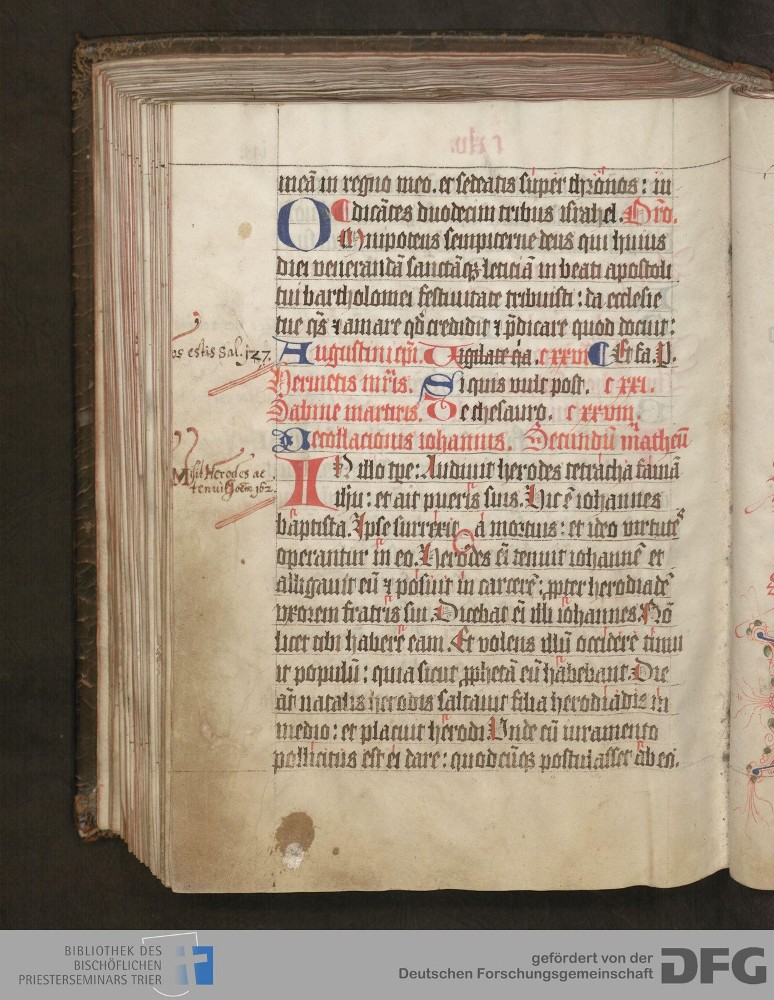 meā in regno meo. et sedeatis super thronos: iu
dicātes duodecim tribus israhel. Oro.
Omnipotens sempiterne deus qui huius
diei venerandā sanctāqz leticiā in beati apostoli
tui bartholomei festivitate tribuisti: da ecclesie
tue qs et amare qd credidit et pdicare quod docuit:
os estis Sal. 127.
Augustini epi. Vigilate ga. cxxvi Et fa. V.
Hermetis mris. Si quis vult post. cxxi.
Sabine martiris. De thesauro. cxxviii.
Decollacionis iohannis. Secundū matheū
Misit Herodes ac
tenuit Joēm 162.
IN illo tpe: Audivit herodes tetracha famā
ihu: et ait pueris suis. Hic ē iohannes
baptista. Ipse surrexit a mortuis: et ideo virtutes
operantur in eo. Herodes eī tenuit iohannē et
alligavit eū et posuit in carcerē: ppter herodiadē
vxorem fratris sui. Dicebat eī illi iohannes. Nō
licet tibi habere eam. Et volens illū occidere timu
it populū: quia sicut pphetā eū habebant. Die
aūt natalis herodis saltavit filia herodiadis in
medio: et placuit herodi. Unde cū iuramento
pollicitus est ei dare: quodcūqz postulasset ab eo.
BIBLIOTHEK DES
BISCHÖFLICHEN
PRIESTERSEMINARS TRIER
gefördert von der
Deutschen Forschungsgemeinschaft DFG